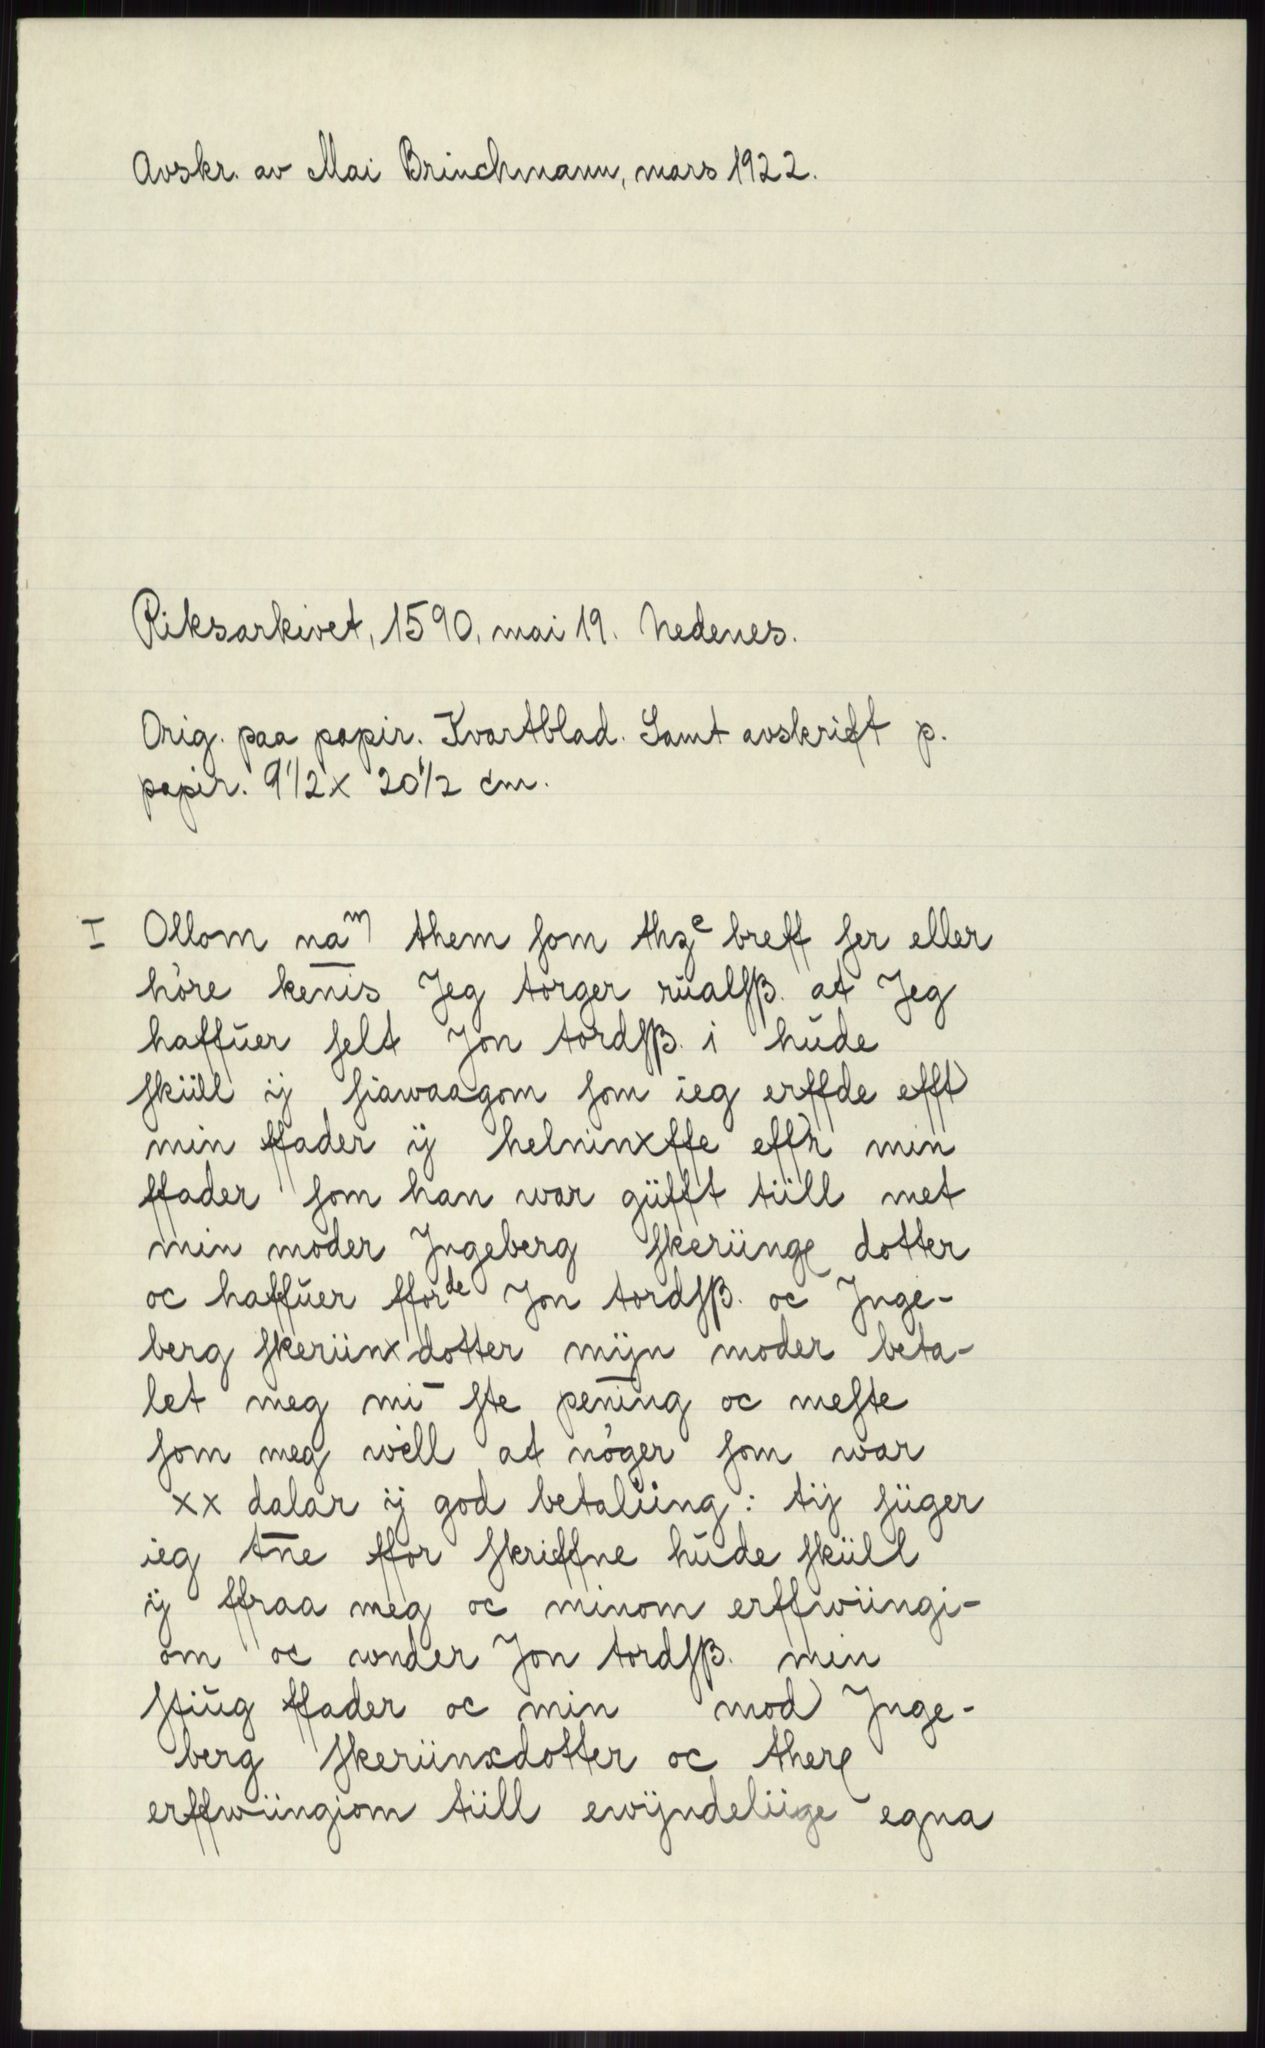 Avskr. av Mai Brinchmann, mars 1922.
Riksarkivet, 1590, mai 19. Nedenes.
Orig. paa papir. Kvartblad. Samt avskrift p.
papir. 9 1/2 x 20 1/2 cm.
I Ollom naᵐ them ſom thzᵉ breff ſer eller
höre ken̅is Jeg torger rüalſſß. at Jeg
haffŭer ſelt Jon tordſſß. i hŭde
ſküll ij ſiawaagom ſom ieg erffde efft
min ffader ij helninxffe effr min
ffader ſom han war güfft tiill met
min moder Jngeberg ſkeriinge dotter
oc haffŭer fforᵈᵉ Jon tordſſß. oc Jnge-
berg ſkeriinxdotter mijn moder beta-
let meg mi̅ ſte pen̅ing oc meſte
ſom meg well at nöger ſom war
xx dalar ij god betaliing: tij ſiiger
ieg tn̅e ffor ſkriffne hŭde ſküll
ij ffraa meg oc minom erffwiingi-
om oc wnder Jon tordſſß. min
ſtiŭg ffader oc min mod Jnge-
berg ſkeriinxdotter oc there
erffwiingiom tiill ewijndeliige egna